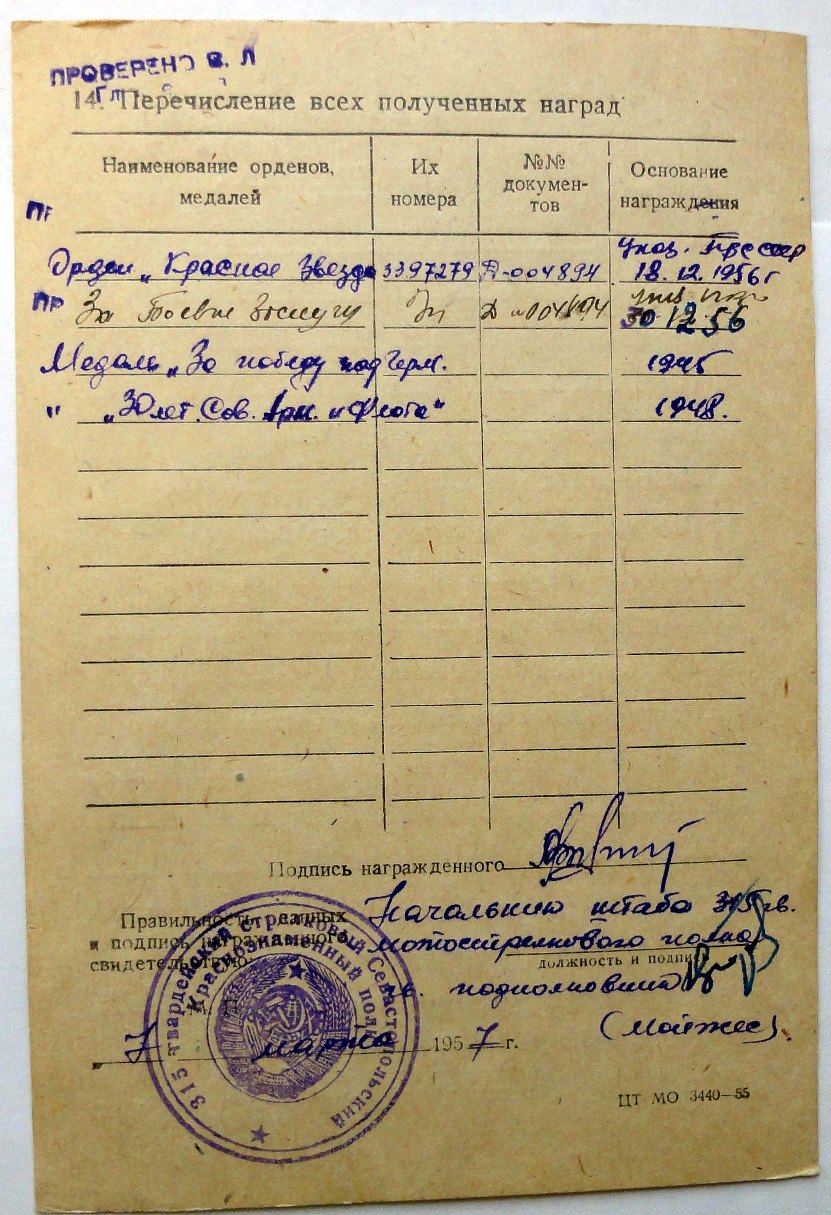 ПРОВЕРЕНО В. Л
14. Перечисление всех полученных наград
Наименование орденов, медалей
Их номера
№№ документов
Основание награждения
ПГ
Орден „Красное Звезда 3397279 Д-004894 Указ. През ссср 18.12.1956 г
ПР За Боевые Заслуги 30 12 56
Медаль „За победу над Герм. 1945
" „30 лет. Сов. Арм. и Флота" 1948.
Подпись награжденного
Правильность данных
и подпись награжденного
свидетельствую:
Начальник штаба 315 гв.
мотострелкового полка
должность и подпись
гв. подполковник
(Мойжес)
7 марта 1957 г.
315 гвардейский стрелковый Севастопольский
Краснознаменный полк
ЦТ МО 3440—55